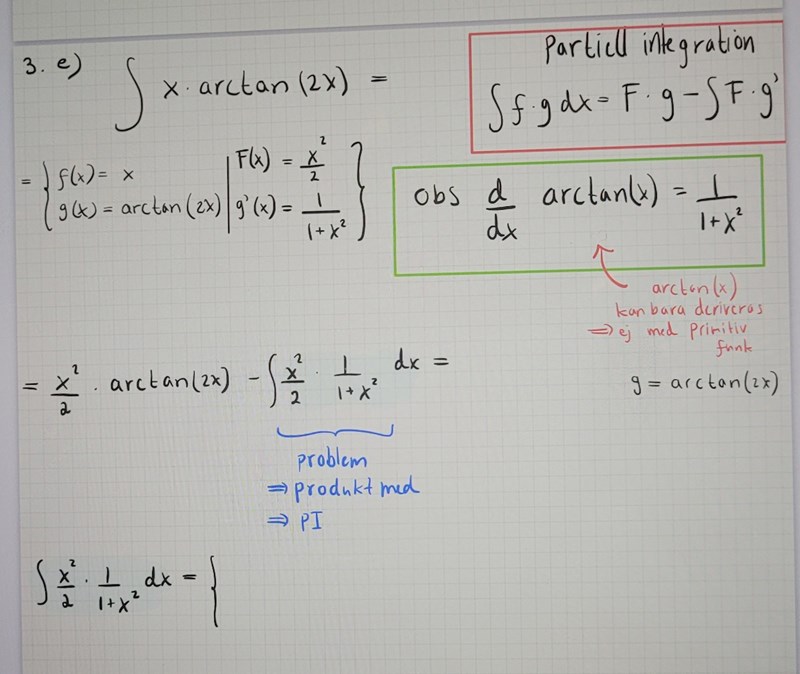 3. e) ∫ x · arctan(2x) =
Partiell integration
∫ f · g dx = F · g − ∫ F · g'
= { f(x) = x | F(x) = x²/2 }
{ g(x) = arctan(2x) | g'(x) = 1/(1+x²) }
obs d/dx arctan(x) = 1/(1+x²)
arctan(x)
kan bara deriveras
⇒ ej med primitiv
funk
g = arctan(2x)
= x²/2 · arctan(2x) − ∫ x²/2 · 1/(1+x²) dx =
problem
⇒ produkt med
⇒ PI
∫ x²/2 · 1/(1+x²) dx = {